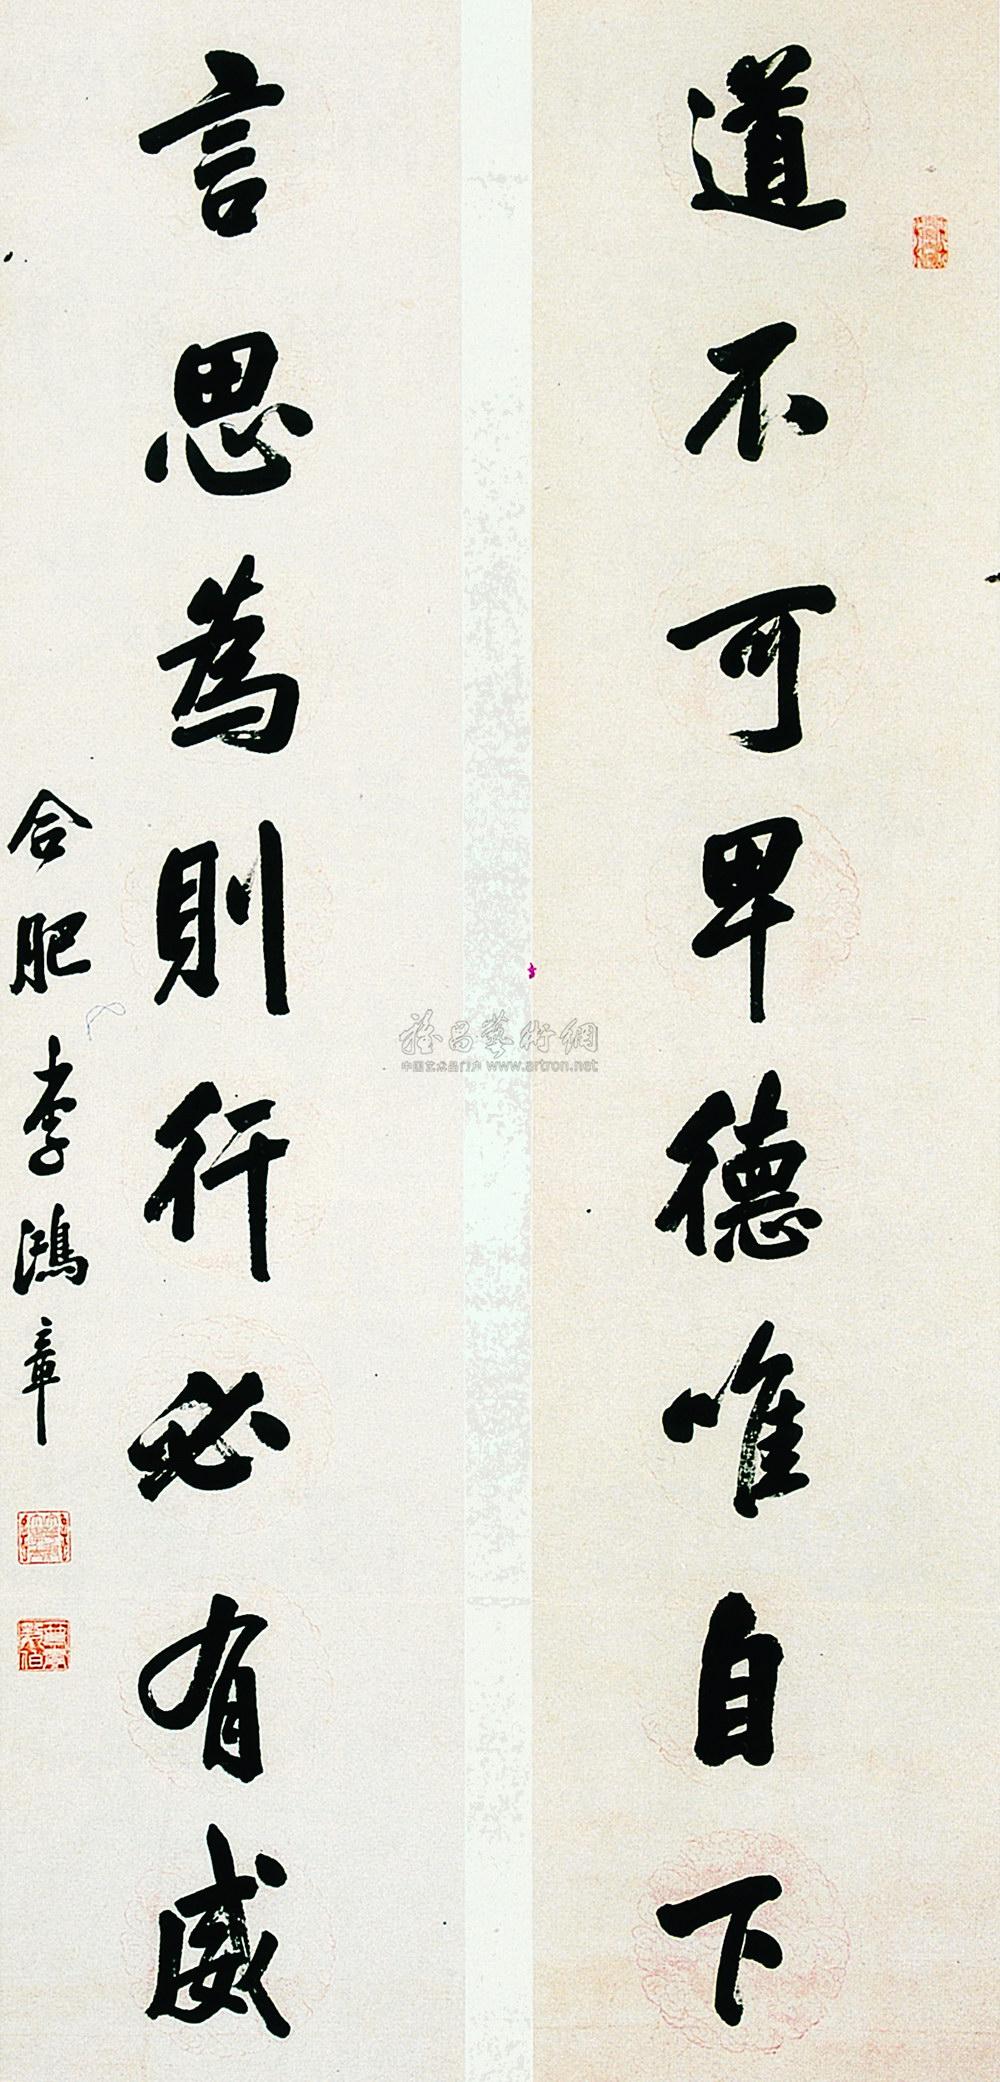 道不可卑德唯自下
言思為則行必有威
合肥李鴻章
雅昌藝術網
中国艺术品门户 www.artron.net